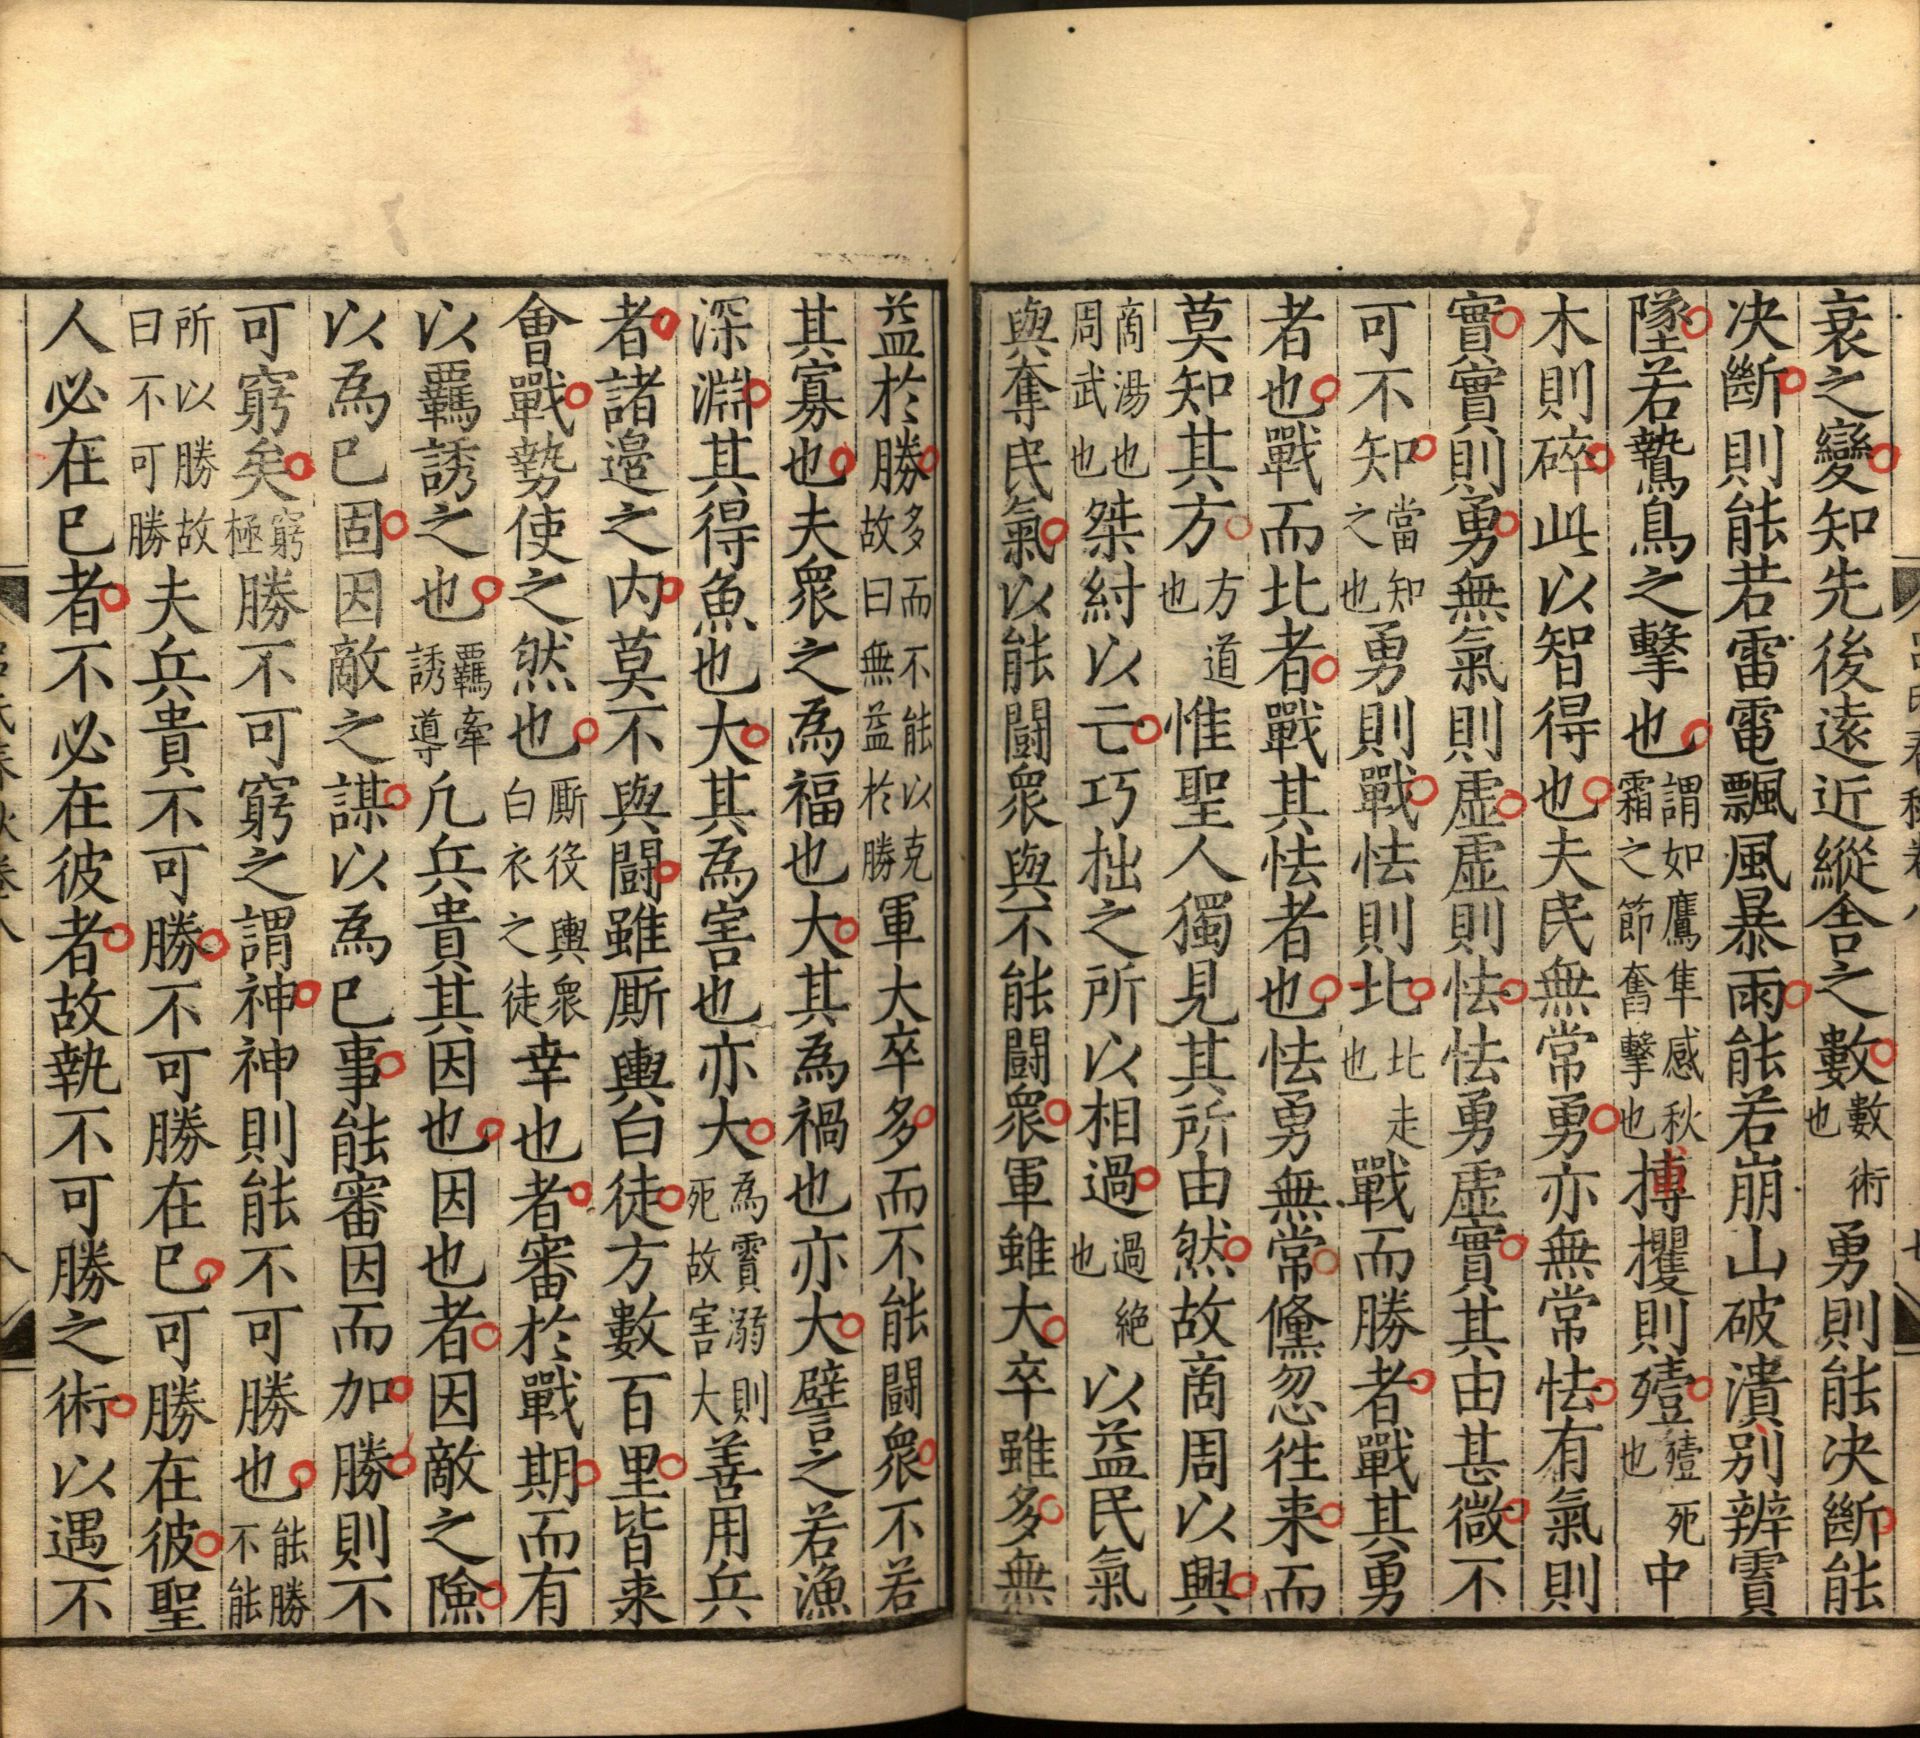 衰之變知先後遠近縱舍之數數術也勇則能决斷能
决斷則能若雷電飄風暴雨能若崩山破潰别辨霣
墜若鷙鳥之擊也謂如鷹隼感秋霜之節奮擊也搏攫則殪殪死也中
木則碎此以智得也夫民無常勇亦無常怯有氣則
實實則勇無氣則虛虛則怯怯勇虛實其由甚微不
可不知當知之也勇則戰怯則北北走也戰而勝者戰其勇
者也戰而北者戰其怯者也怯勇無常儵忽徃来而
莫知其方方道也惟聖人獨見其所由然故商周以興
商湯也周武也桀紂以亡巧拙之所以相過過絶也以益民氣
與奪民氣以能鬬衆與不能鬬衆軍雖大卒雖多無
益於勝多而不能以克故曰無益於勝軍大卒多而不能鬬衆不若
其寡也夫衆之為福也大其為禍也亦大譬之若漁
深淵其得魚也大其為害也亦大為霣溺則死故害大善用兵
者諸邉之内莫不與鬬雖厮輿白徒方數百里皆来
會戰勢使之然也厮役輿衆白衣之徒幸也者審於戰期而有
以羈誘之也羈牽誘導凡兵貴其因也因也者因敵之險
以為已固因敵之謀以為已事能審因而加勝則不
可窮矣窮極勝不可窮之謂神神則能不可勝也能勝不能
所以勝故曰不可勝夫兵貴不可勝不可勝在已可勝在彼聖
人必在已者不必在彼者故執不可勝之術以遇不